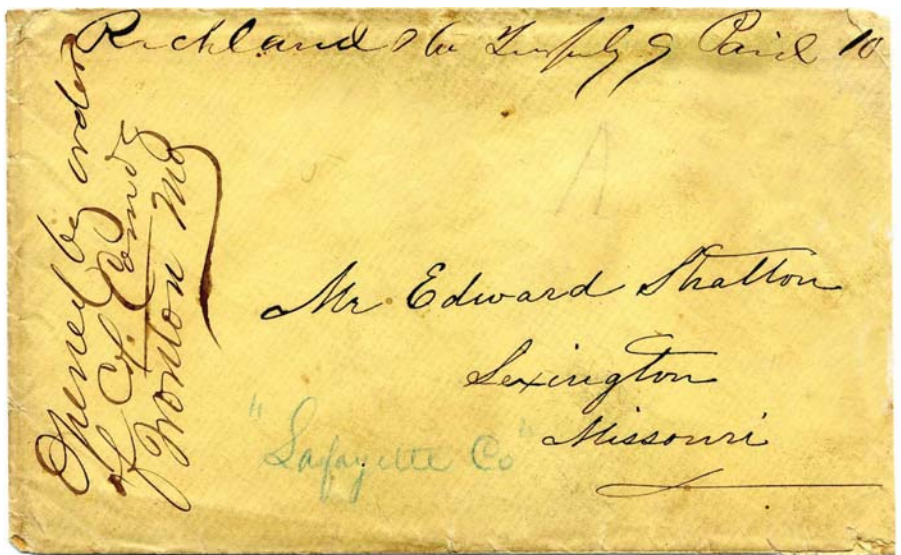 Richland July 9 Paid 10
Opened by order
of Col. Comdg
Ironton Mo
Mr Edward Stratton
Lexington
Missouri
"Lafayette Co"